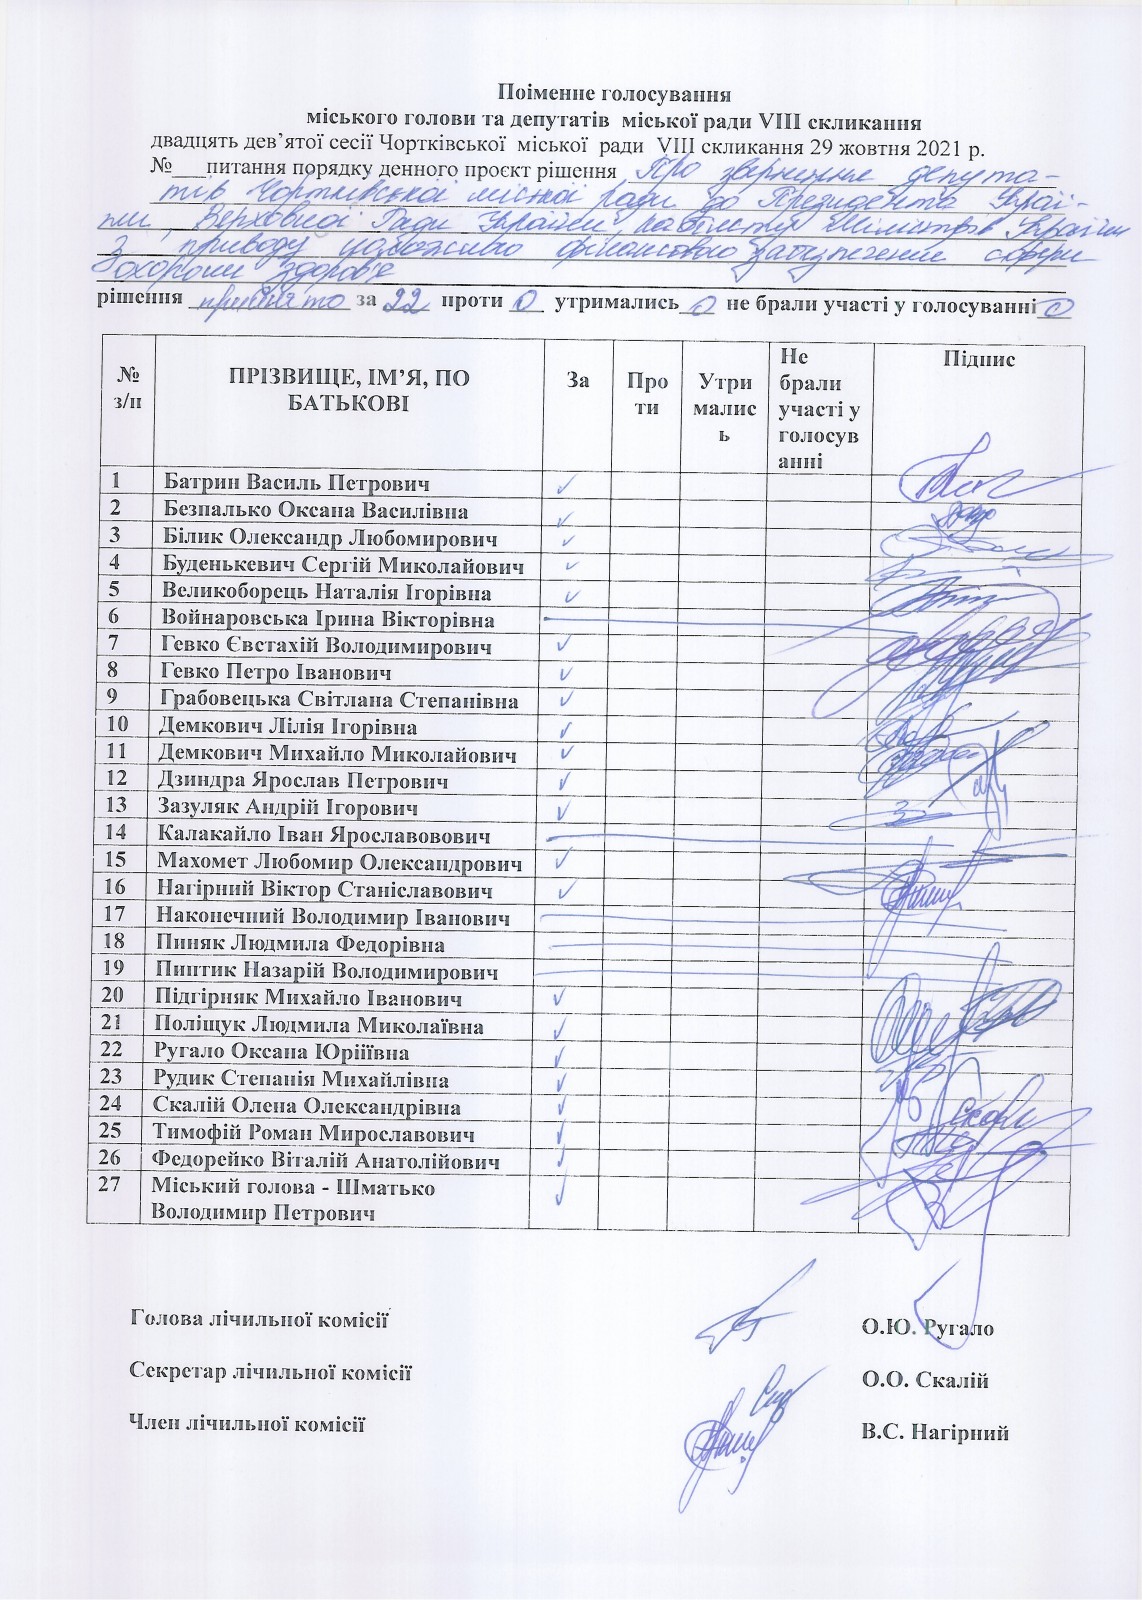 Поіменне голосування
міського голови та депутатів міської ради VIII скликання
двадцять дев’ятої сесії Чортківської міської ради VIII скликання 29 жовтня 2021 р.
№___питання порядку денного проєкт рішення Про звернення депута-
тів Чортківської міської ради до Президента Украї-
ни, Верховної Ради України, Кабінету Міністрів України
з приводу належного фінансового забезпечення сфери
охорони здоров'я
рішення прийнято за 22 проти 0 утримались 0 не брали участі у голосуванні 0
№ з/п ПРІЗВИЩЕ, ІМ’Я, ПО БАТЬКОВІ За Про ти Утри малис ь Не брали участі у голосув анні Підпис
1 Батрин Василь Петрович ✓
2 Безпалько Оксана Василівна ✓
3 Білик Олександр Любомирович ✓
4 Буденькевич Сергій Миколайович ✓
5 Великоборець Наталія Ігорівна ✓
6 Войнаровська Ірина Вікторівна
7 Гевко Євстахій Володимирович ✓
8 Гевко Петро Іванович ✓
9 Грабовецька Світлана Степанівна ✓
10 Демкович Лілія Ігорівна ✓
11 Демкович Михайло Миколайович ✓
12 Дзиндра Ярослав Петрович ✓
13 Зазуляк Андрій Ігорович ✓
14 Калакайло Іван Ярославовович
15 Махомет Любомир Олександрович ✓
16 Нагірний Віктор Станіславович ✓
17 Наконечний Володимир Іванович
18 Пиняк Людмила Федорівна
19 Пинтик Назарій Володимирович
20 Підгірняк Михайло Іванович ✓
21 Поліщук Людмила Миколаївна ✓
22 Ругало Оксана Юріїівна ✓
23 Рудик Степанія Михайлівна ✓
24 Скалій Олена Олександрівна ✓
25 Тимофій Роман Мирославович ✓
26 Федорейко Віталій Анатолійович ✓
27 Міський голова - Шматько ✓
Володимир Петрович
Голова лічильної комісії О.Ю. Ругало
Секретар лічильної комісії О.О. Скалій
Член лічильної комісії В.С. Нагірний